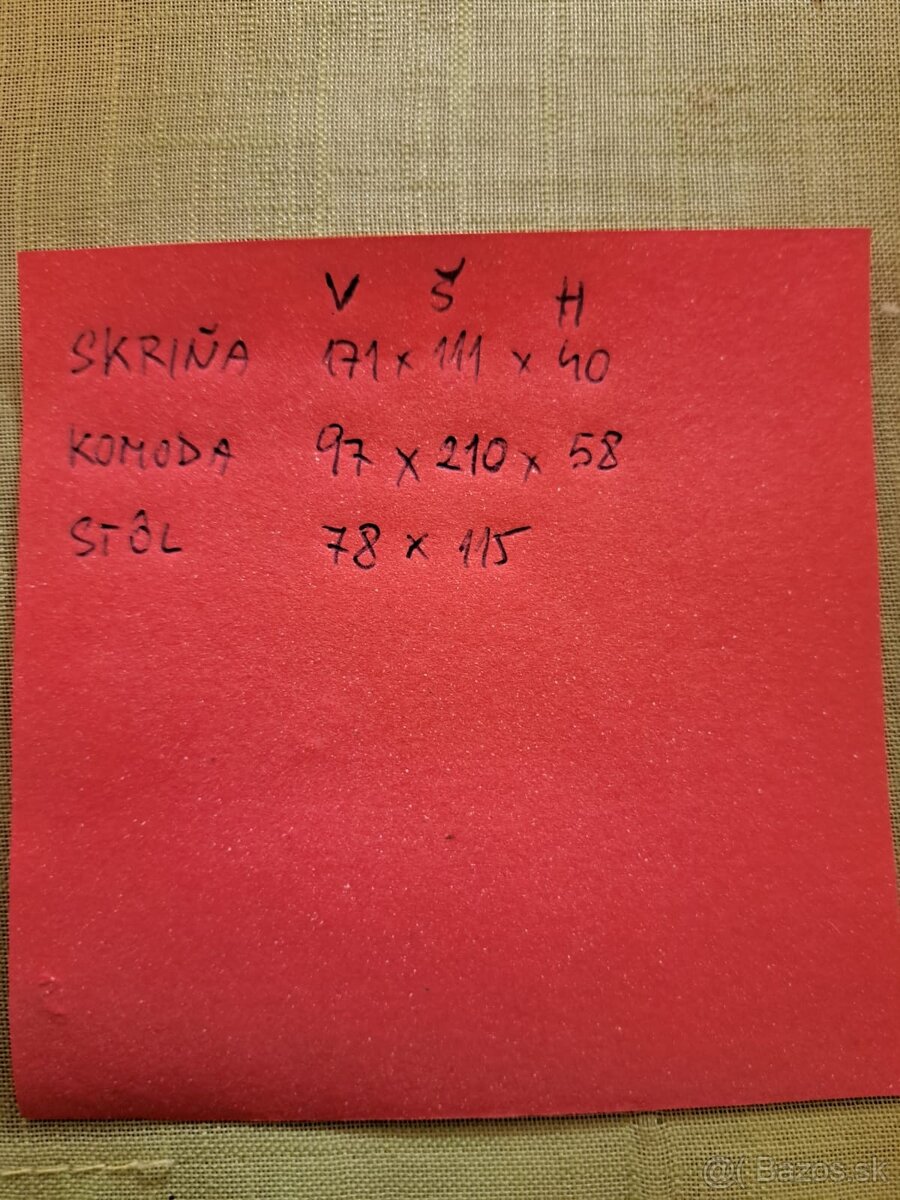 V Š H
SKRIŇA 171 x 111 x 40
KOMODA 97 x 210 x 58
STÔL 78 x 115
@( Bazos.sk